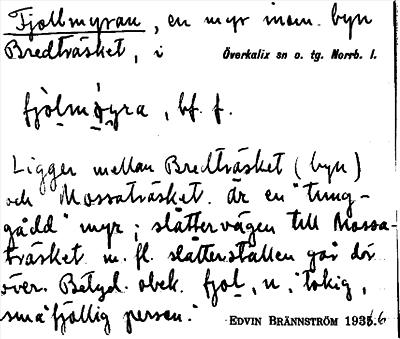 Fjollmyran, en myr inom. byn
Bredträsket, i Överkalix sn o. tg. Norrb. l.
fjo̲l̲mø̲yra, bf. f.
Ligger mellan Bredträsket (byn)
och Mossaträsket. är en "tung-
gådd" myr; slåttervägen till Mossa-
träsket m. fl. slåtterställen går där
över. Betyd. obek. fjol, n. "tokig,
små fjollig person." EDVIN BRÄNNSTRÖM 1936.